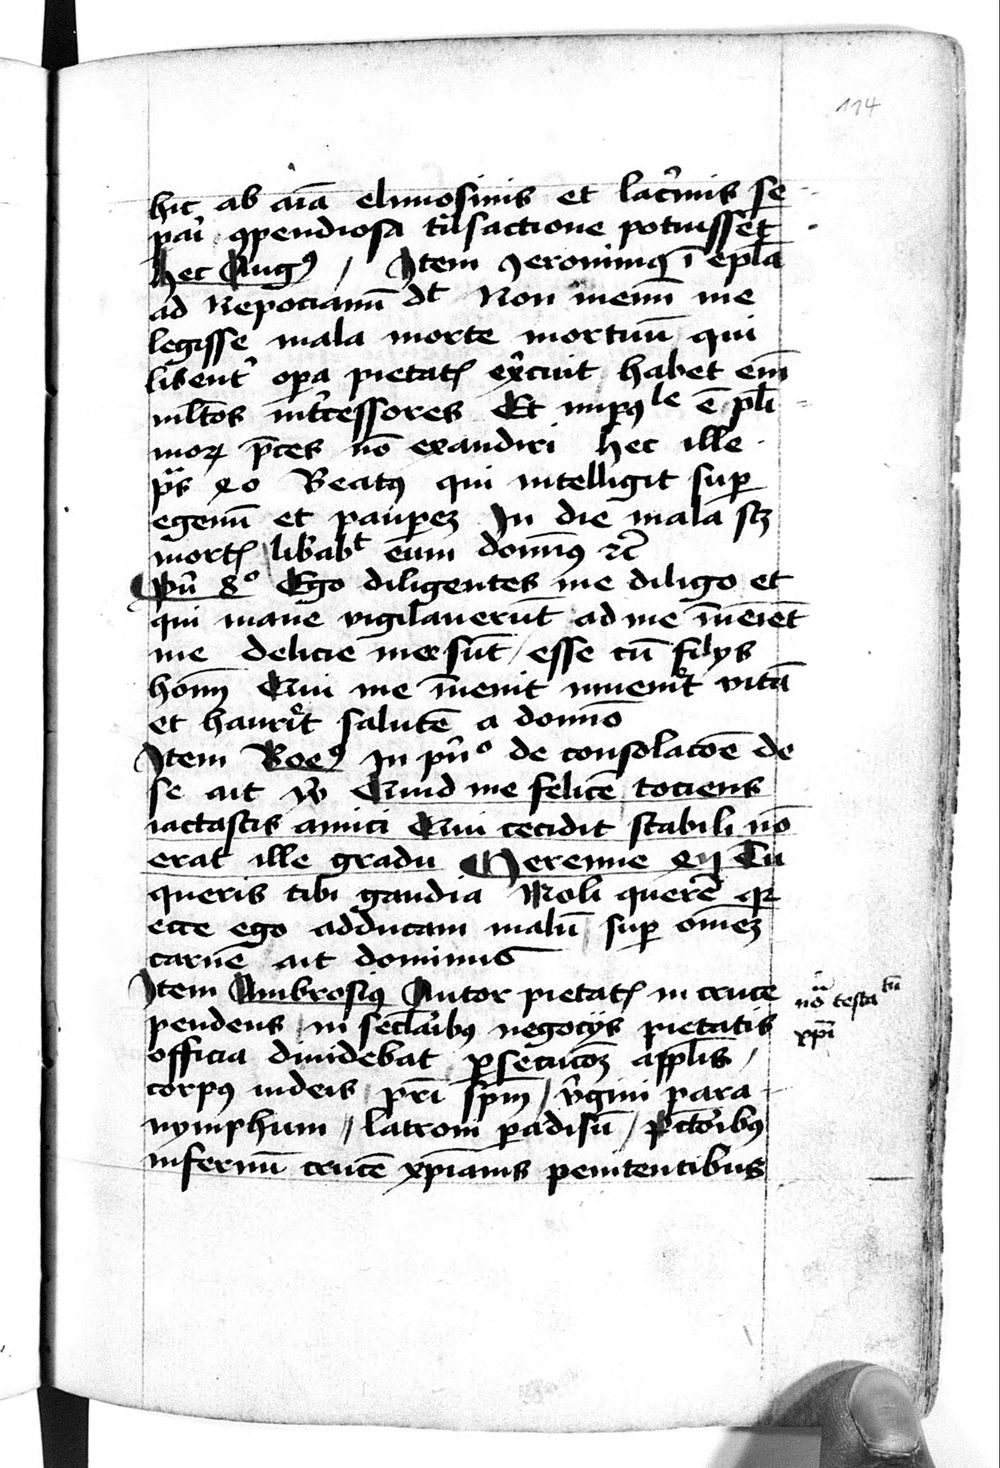 114
hic ab aīa elimosinis et lac̄mis se
pāī ꝯpendiosa t̄nsactione potuisset
hec Augꝯ / Item Jeronimꝯ ī epl̄a
ad Nepocianū dt Non memī me
legisse mala morte mortuū qui
libent̄ oꝑa pietatꝭ ex̄cuit habet em̄
ml̄tos int̄cessores Et impoꝯle ē pl̄i
moꝝ p̄ces nō exaudiri hec ille
p̄s xo Beatꝯ qui intelligit suꝑ
egenū et pauꝑeꝫ In die mala sꝫ
mortꝭ lib̄abt eum domīꝯ ⁊c̄
Pū 8o Ego diligentes me diligo et
qui mane vigilaverūt ad me īveīet
me delicie mee sūt / esse cū filijs
hoīm Qui me īvenit inveniᷣt vitā
et hauriᷣt salutē a domīo
Item Boeꝯ In pīo de consolacōe de
se ait v̄o Quid me felicē tociens
iactastis amici Qui cecidit stabili nō
erat ille gradu Jeremie xlv Tu
queris tibi gaudia Noli querē qꝛ
ecce ego adducam malū suꝑ omēꝫ
carnē ait dominus
Item Ambrosiꝯ Autor pietatꝭ in cruce
pendens in secl̄aībꝯ negocijs pietatis
officia dividebat ꝑsecucōeꝫ appl̄is /
corpꝯ iudeis / pr̄i spm̄ / v̄gini para
nymphum / latroni ꝑadisū / pctōibꝯ
infernū crucē xp̄ianis penitentibus
nō testatū
xp̄i